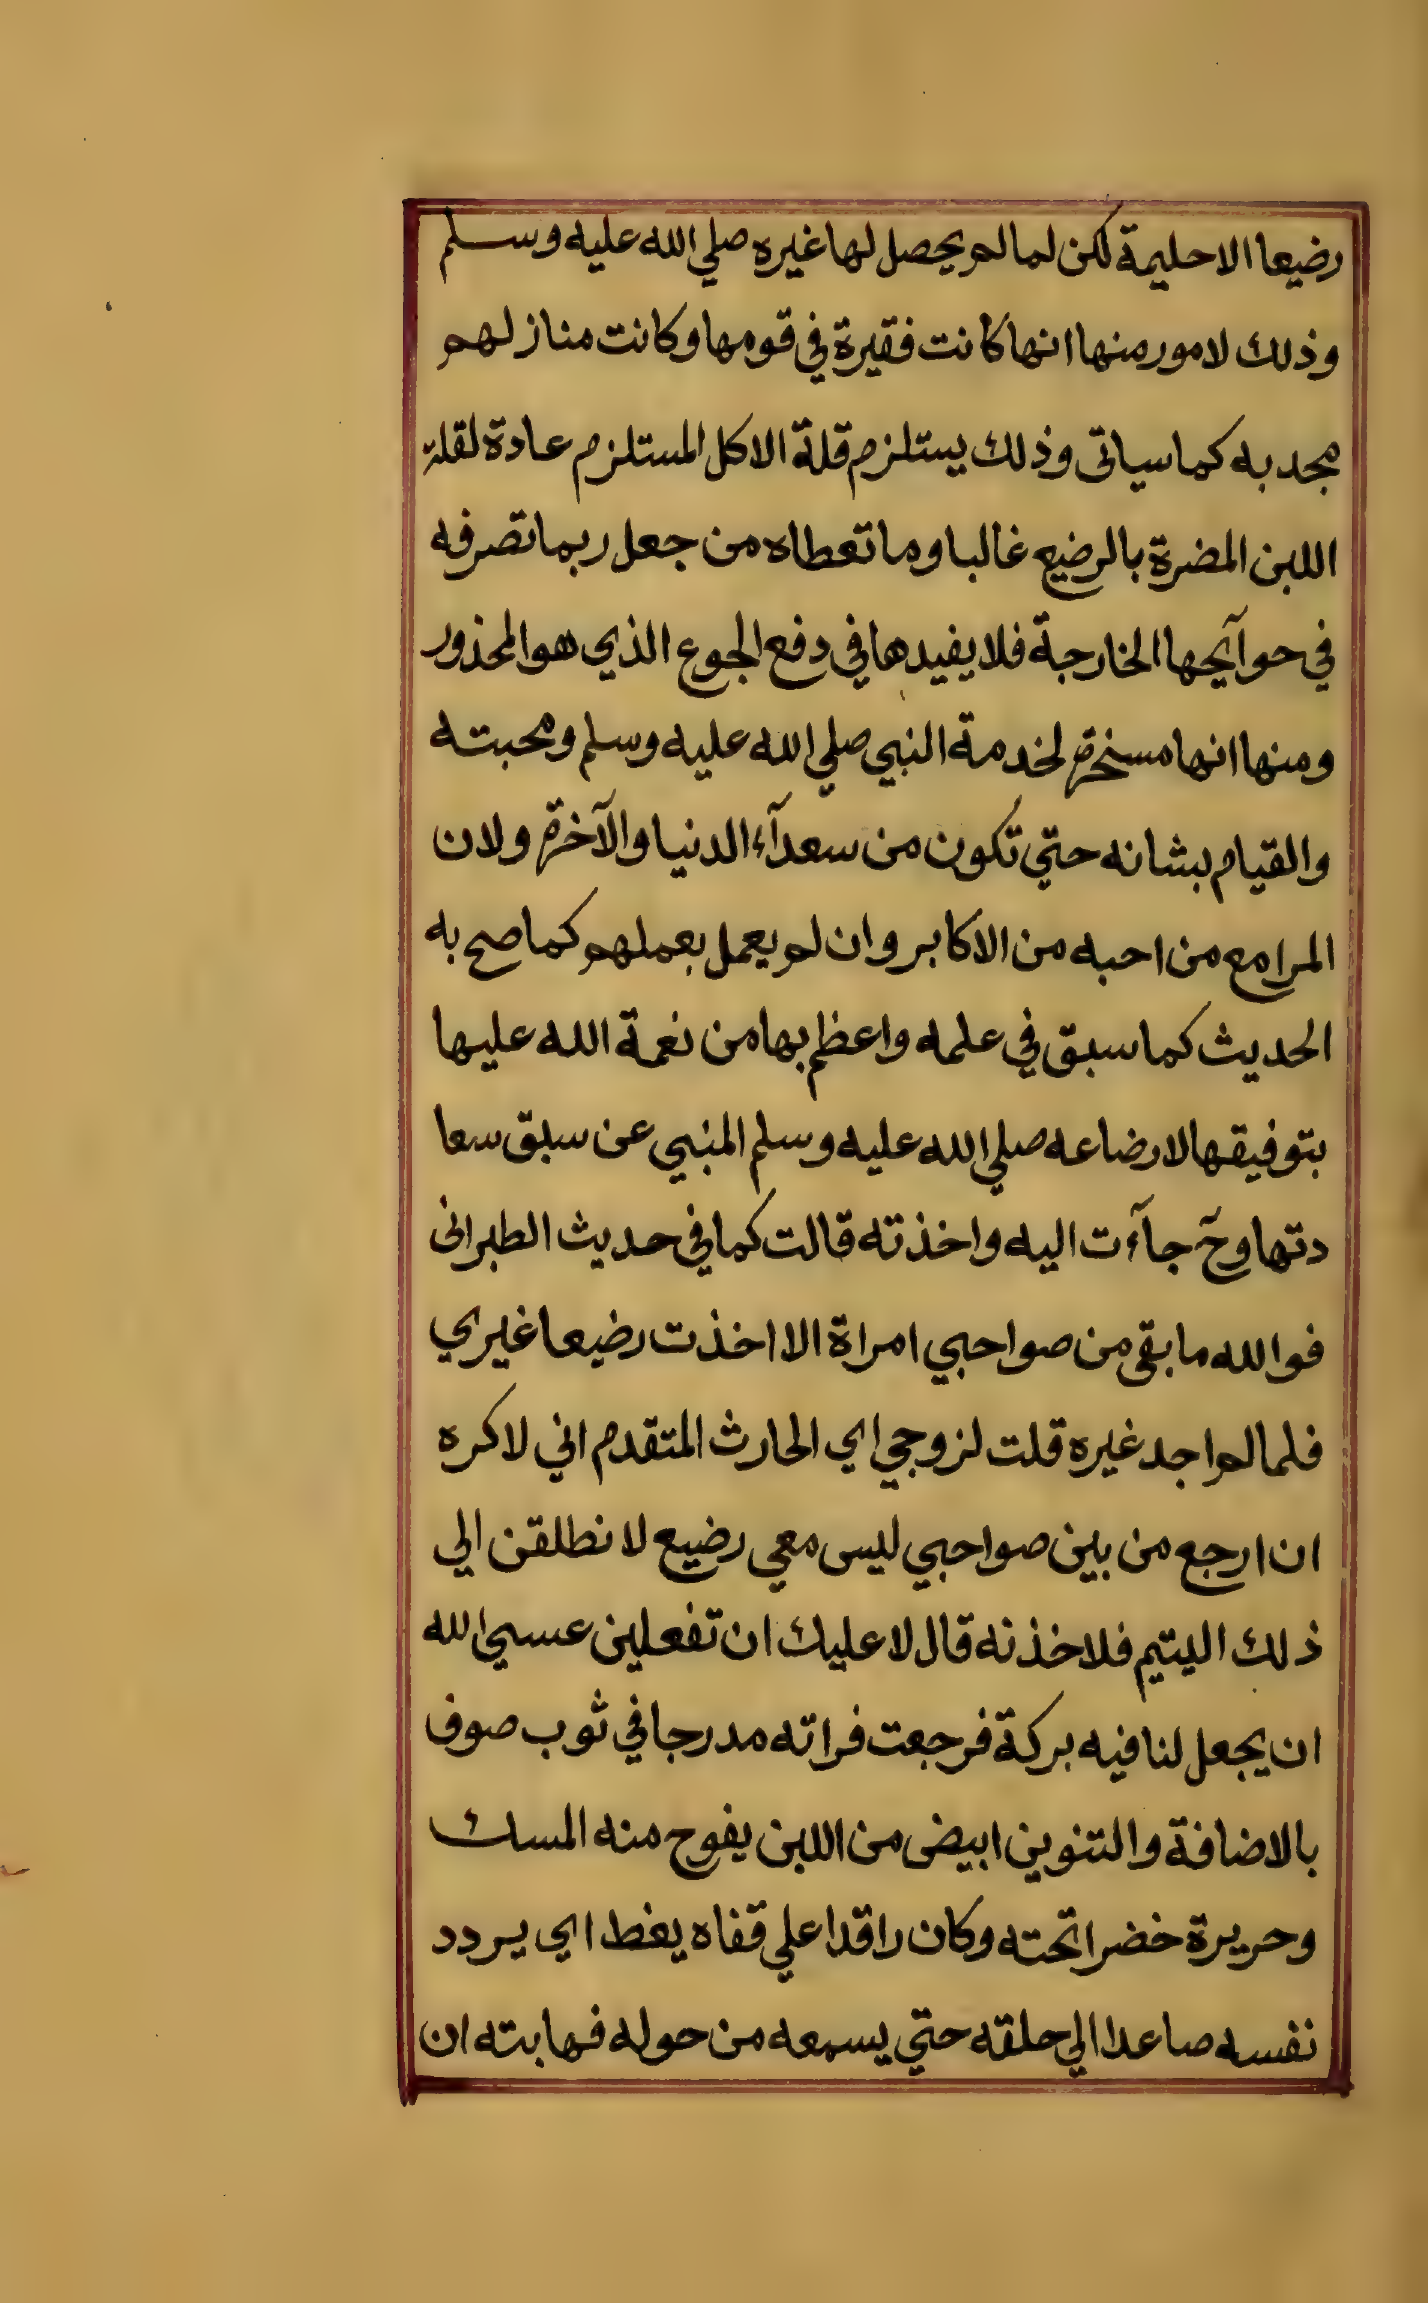 رضيعا الا حليمة لكن لما لم يحصل لها غيره صلي الله عليه وسلم
وذلك لامور منها انها كانت فقيرة في قومها وكانت منازلهم
مجدبه كما سياتى وذلك يستلزم قلة الاكل المستلزم عادة لقلة
اللبن المضرة بالرضيع غالبا وما تعطاه من جعل ربما تصرفه
في حوآيجها الخارجة فلا يفيدها في دفع الجوع الذي هو المحذور
ومنها انها مسخرة لخدمة النبي صلي الله عليه وسلم ومحبته
والقيام بشانه حتي تكون من سعدآء الدنيا والآخرة ولان
المرا مع من احبه من الاكابر وان لم يعمل بعملهم كما صح به
الحديث كما سبق في علمه واعظم بها من نعمة الله عليها
بتوفيقها لارضاعه صلي الله عليه وسلم المنبي عن سبق سعا
دتها وحٓ جآءت اليه واخذته قالت كما في حديث الطبرانى
فوالله ما بقى من صواحبي امراة الا اخذت رضيعا غيري
فلما لم اجد غيره قلت لزوجي اي الحارث المتقدم اني لاكره
ان ارجع من بين صواحبي ليس معي رضيع لانطلقن الي
ذلك اليتيم فلاخذنه قال لا عليك ان تفعلين عسي الله
ان يجعل لنا فيه بركة فرجعت فراته مدرجا في ثوب صوف
بالاضافة والتنوين ابيض من اللبن يفوح منه المسك
وحريرة خضرا تحته وكان راقدا علي قفاه يغط اي يردد
نفسه صاعدا الي حلقه حتي يسمعه من حوله فهابته ان